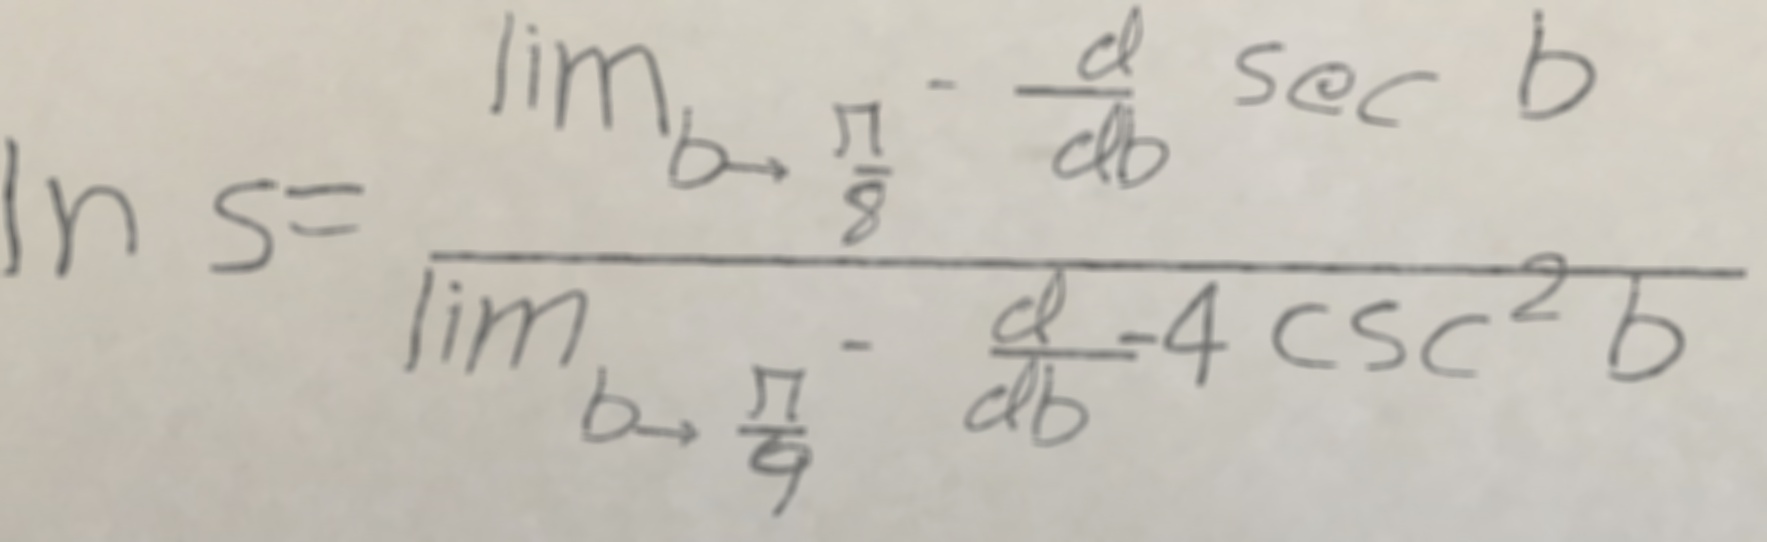 ln s = \frac{\lim_{b \to \frac{\pi}{8}^-} \frac{d}{db} \sec b}{\lim_{b \to \frac{\pi}{9}^-} \frac{d}{db} -4 \csc^2 b}